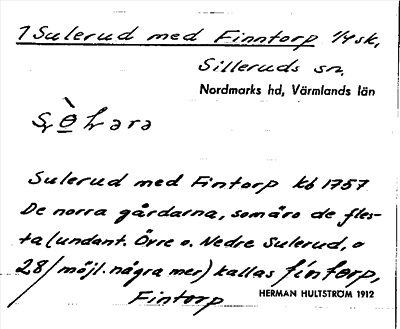 1 Sulerud med Finntorp 1/4 sk,
Silleruds sn.
Nordmarks hd, Värmlands län
Sulerud med Fintorp kb 1757
De norra gårdarna, som äro de fles-
ta (undant. Övre o. Nedre Sulerud, o
28/ möjl. några mer) kallas fintorp,
Fintorp
HERMAN HULTSTRÖM 1912